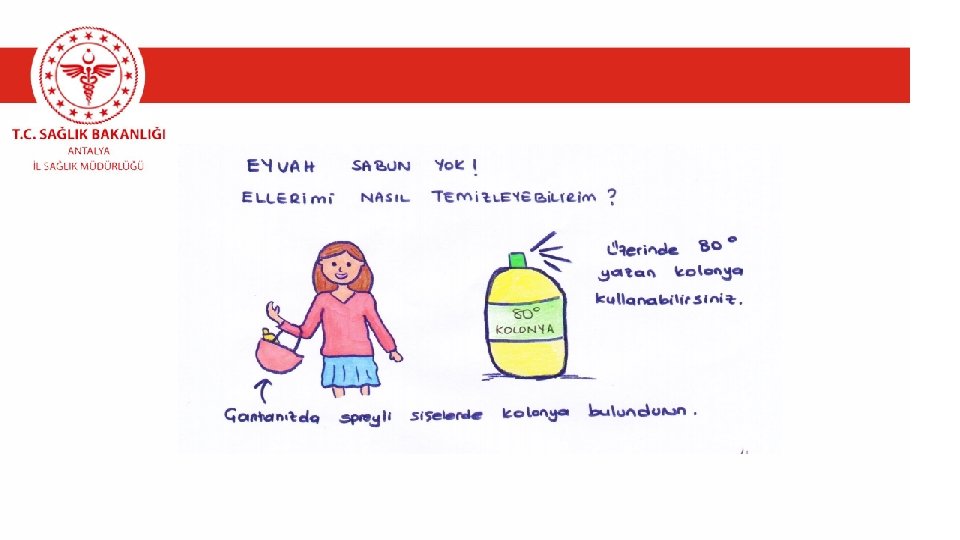 T.C. SAĞLIK BAKANLIĞI
ANTALYA
İL SAĞLIK MÜDÜRLÜĞÜ
EYVAH SABUN YOK!
ELLERİMİ NASIL TEMİZLEYEBİLİRİM?
Üzerinde 80°
yazan kolonya
kullanabilirsiniz.
80°
KOLONYA
Çantanızda spreyli şişelerde kolonya bulundurun.